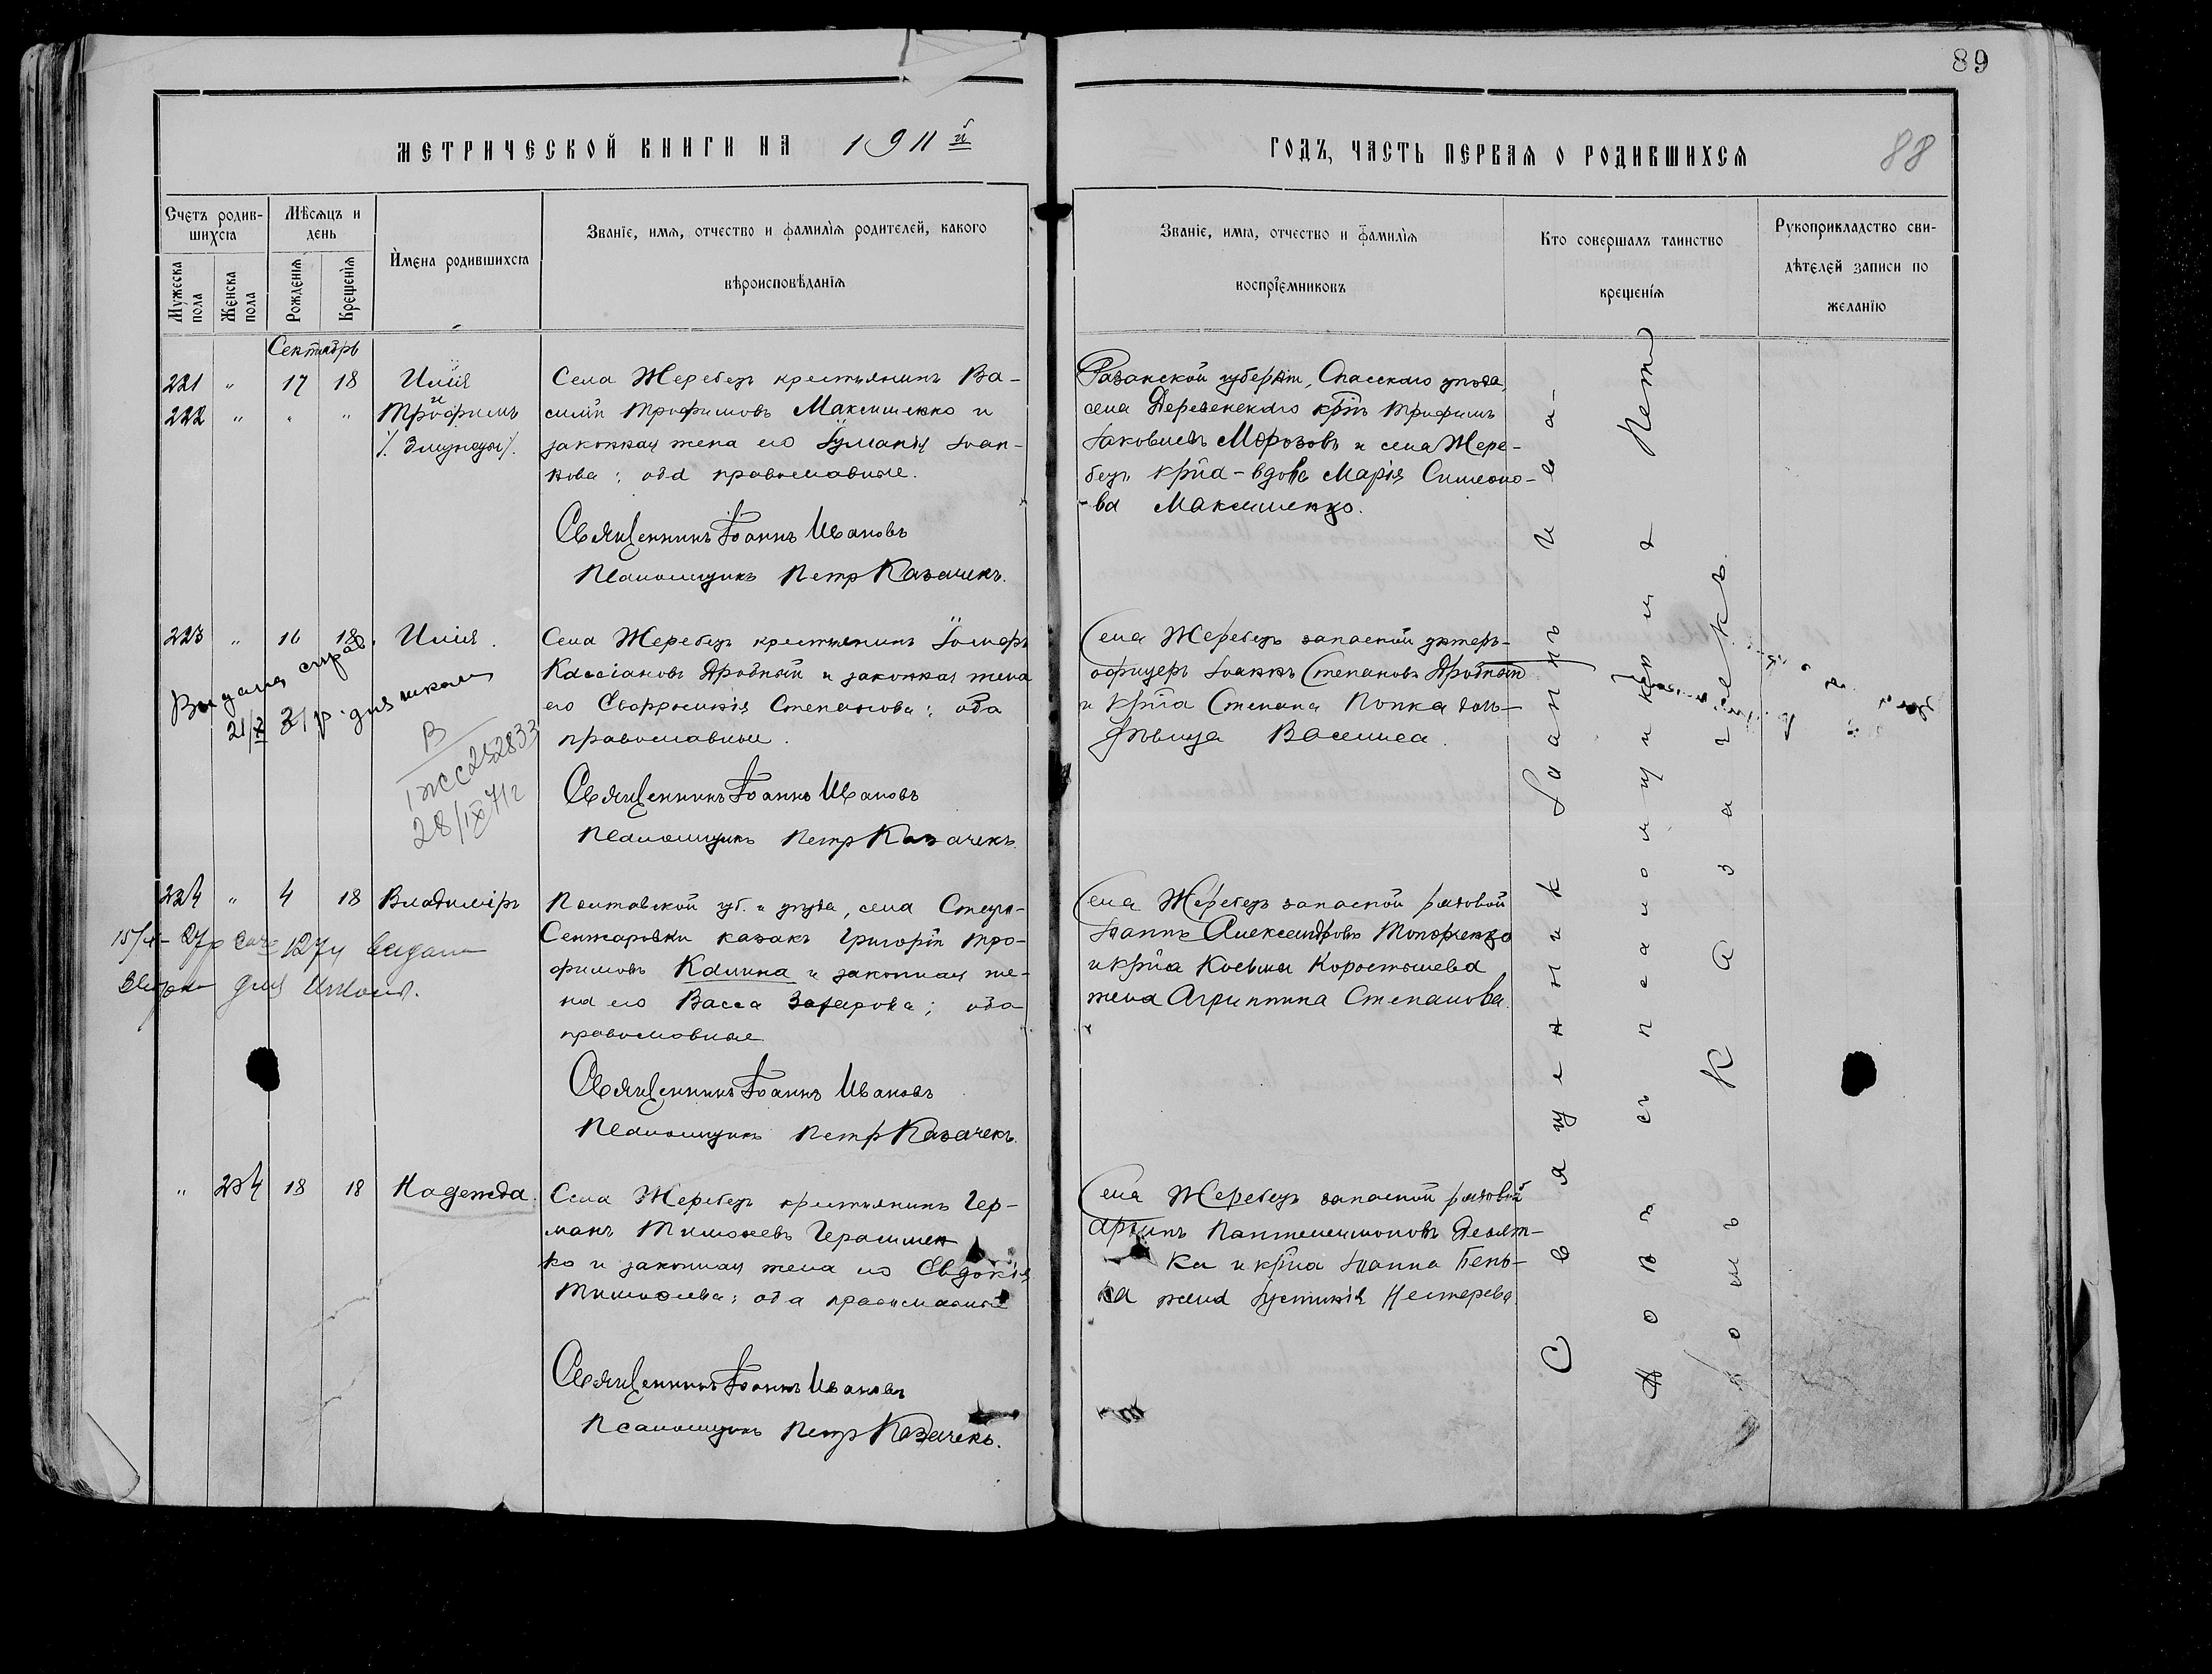 89
МЕТРИЧЕСКОЙ КНИГИ НА 1911й
ГОДЪ, ЧАСТЬ ПЕРВАЯ О РОДИВШИХСЯ
88
Счетъ родив-
шихся
Мѣсяцъ и
день
Мужеска
пола
Женска
пола
Рожденія
Крещенія
Имена родившихся
Званіе, имя, отчество и фамилія родителей, какого
вѣроисповѣданія
Званіе, имя, отчество и фамилія
воспріемниковъ
Кто совершалъ таинство
крещенія
Рукоприкладство сви-
дѣтелей записи по
желанію
Сентябрь
221 " 17 18 Илія
и
222 " " " Трофимъ
/. Близнецы /.
Села Жеребецъ крестьянинъ Ва-
силій Трофимовъ Максименко и
законная жена его Іуліанія Іоан-
нова; оба православные.
Священникъ Іоаннъ Ивановъ
Псаломщикъ Петръ Казачекъ.
Рязанской губерніи, Спасскаго уѣзда,
села Деревенскаго кр-нъ Трифимъ
Іаковлевъ Морозовъ и села Жере-
бецъ кр-ка - вдова Марія Симеоно-
ва Максименко.
223 " 16 18 Илія.
Выдана справ.
21/X 31 р. для школы
В
1ЖС 252833
28/IX 71г
Села Жеребецъ крестьянинъ
Кассіановъ Дробный и законная жена
его Евфросинія Степанова; оба
православные.
Священникъ Іоаннъ Ивановъ
Псаломщикъ Петръ Казачекъ.
Села Жеребецъ запасной унтеръ-
офицеръ Іоаннъ Степановъ Дробный
и кр-на Степана Попка дочь-
дѣвица Василиса.
224 " 4 18 Владиміръ
выдана
для
Полтавской губ. и уѣзда, села
Сенжаровки казакъ Григорій Тро-
фимовъ Калина и законная же-
на его Васса Захарова; оба
православные.
Священникъ Іоаннъ Ивановъ
Псаломщикъ Петръ Казачекъ.
Села Жеребецъ запасной рядовой
Іоаннъ Александровъ Топорченко
и кр-на Косьмы Коростышева
жена Агриппина Степанова.
" 204 18 18 Надежда.
Села Жеребецъ крестьянинъ Гер-
манъ Тимофеевъ Герасимен
ко и законная жена его Евдокія
Тимофеева; оба православные
Священникъ Іоаннъ Ивановъ
Псаломщикъ Петръ Казачекъ.
Села Жеребецъ запасной рядовой
Пантелеимоновъ Девят-
ка и кр-на Іоанна Бень-
ка жена Іустинія Нестерова.
Священникъ Іоаннъ Ива-
новъ съ псаломщикомъ Пет
ромъ Казачекъ.